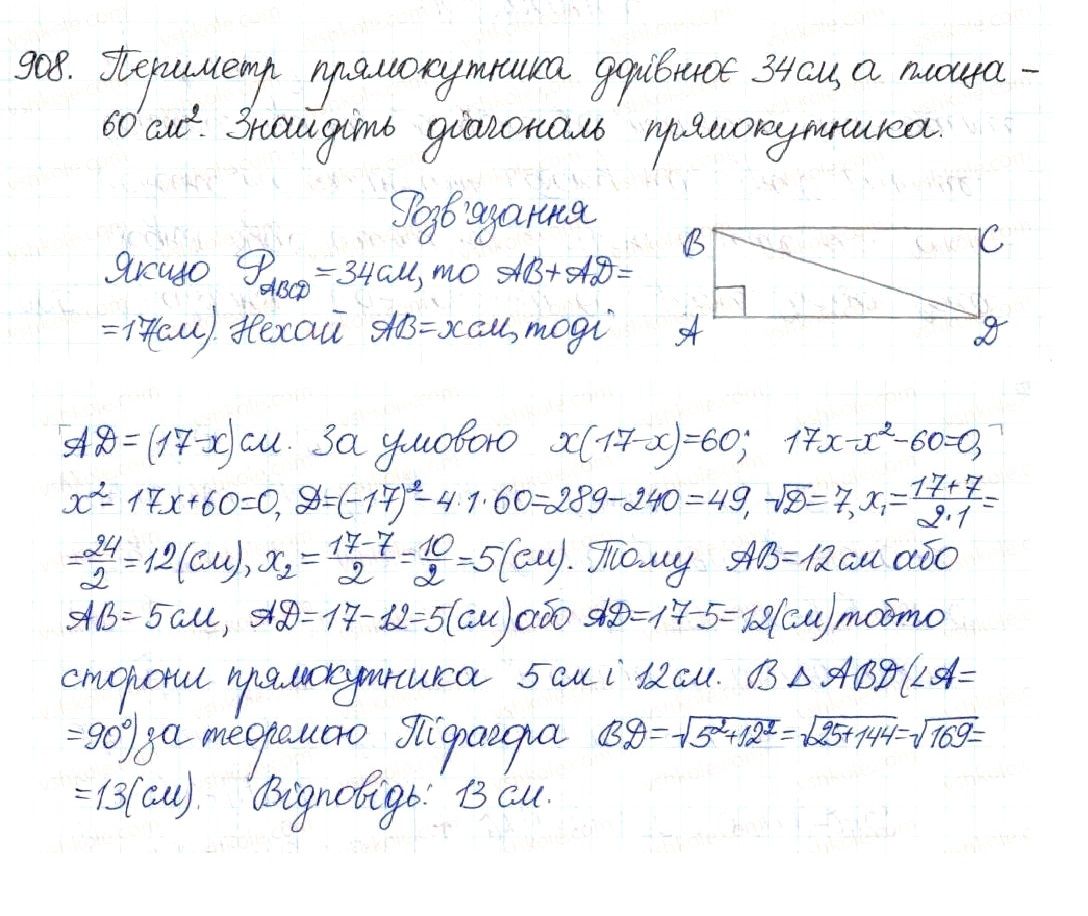 908. Периметр прямокутника дорівнює 34 см, а площа –
60 см². Знайдіть діагональ прямокутника.
Розв'язання
Якщо P_ABCD = 34 см, то AB + AD =
= 17(см). Нехай AB = x см, тоді
B C
A D
AD = (17-x) см. За умовою x(17-x)=60; 17x-x²-60=0,
x²- 17x+60=0, D=(-17)²-4·1·60=289-240=49, √D=7, x₁=(17+7)/(2·1)=
=24/2=12(см), x₂=(17-7)/2=10/2=5(см). Тому AB=12 см або
AB=5 см, AD=17-12=5(см) або AD=17-5=12(см) тобто
сторони прямокутника 5 см і 12 см. В △ ABD (∠A=
=90°) за теоремою Піфагора BD=√5²+12²=√25+144=√169=
=13(см). Відповідь: 13 см.